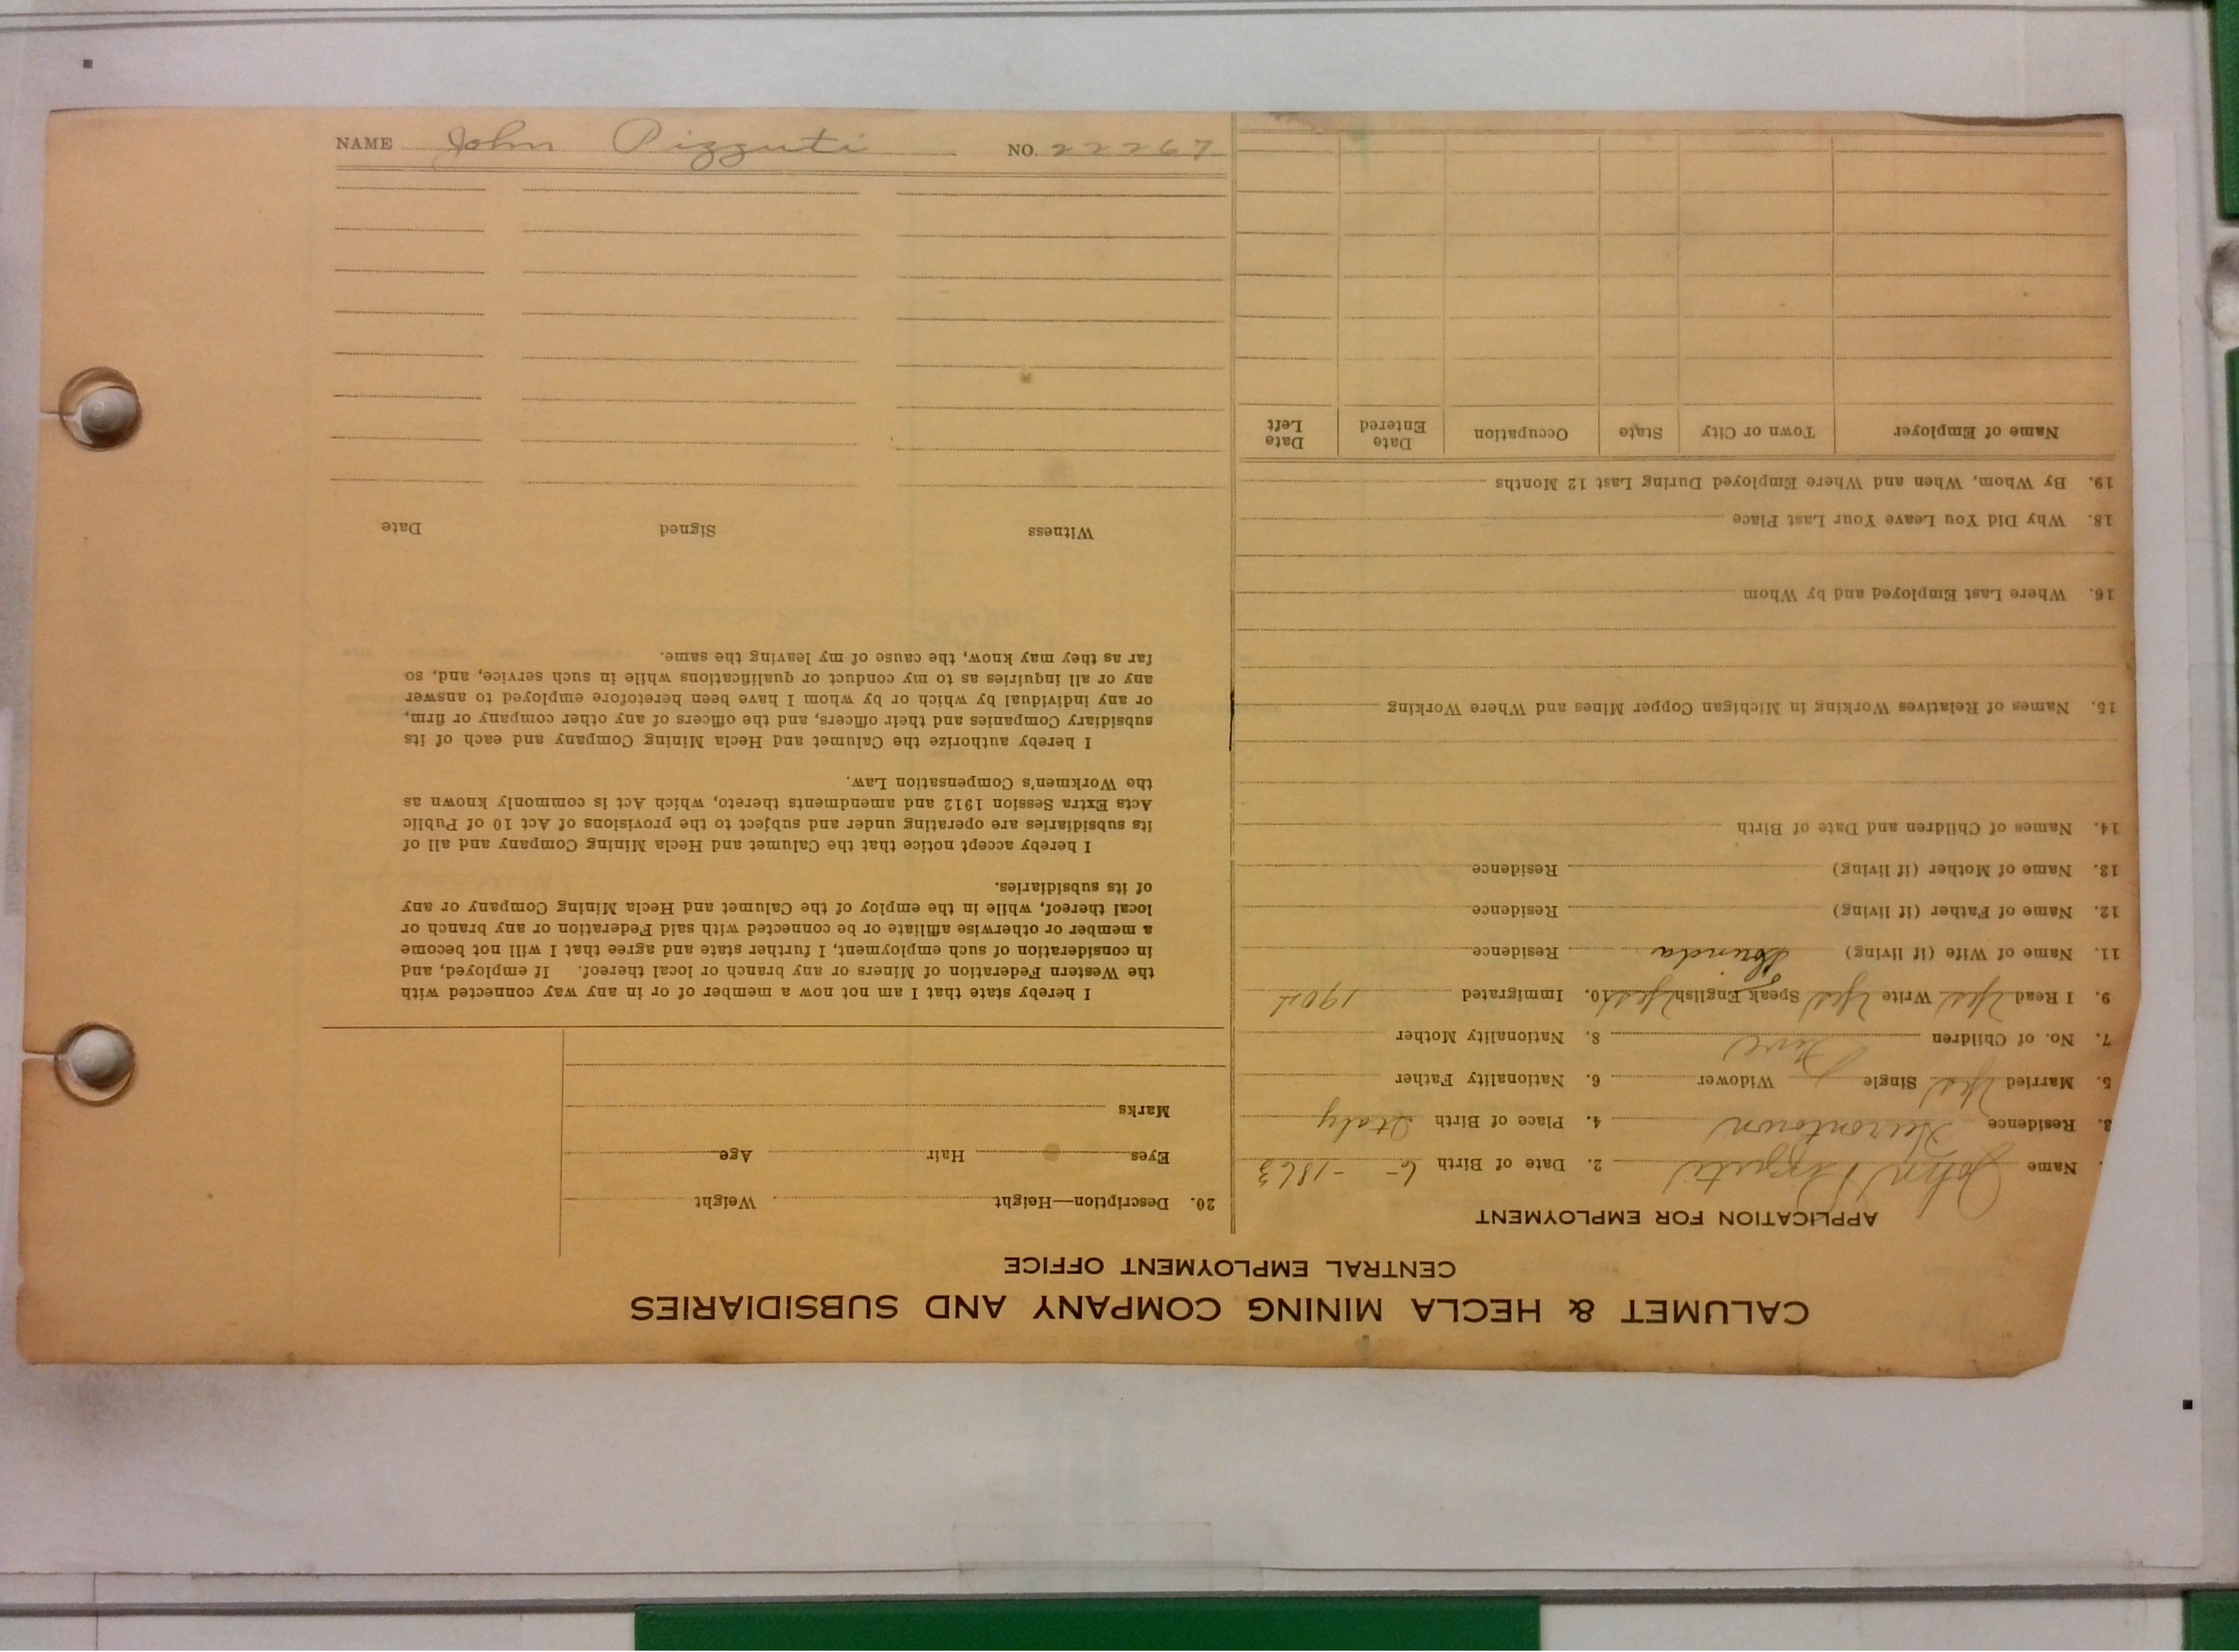 NAME John Pizzuti NO. 22267
CALUMET & HECLA MINING COMPANY AND SUBSIDIARIES
CENTRAL EMPLOYMENT OFFICE
APPLICATION FOR EMPLOYMENT
Name John Pizzuti 2. Date of Birth 6 - -1863
3. Residence Hurontown 4. Place of Birth Italy
5. Married Yes Single Widower 6. Nationality Father
7. No. of Children Five 8. Nationality Mother
9. I Read Yes Write Yes Speak English Yes 10. Immigrated 1901
11. Name of Wife (if living) Residence
12. Name of Father (if living) Residence
13. Name of Mother (if living) Residence
14. Names of Children and Date of Birth
15. Names of Relatives Working in Michigan Copper Mines and Where Working
16. Where Last Employed and by Whom
18. Why Did You Leave Your Last Place
19. By Whom, When and Where Employed During Last 12 Months
Name of Employer Town or City State Occupation Date Entered Date Left
20. Description—Height Weight
Eyes Hair Age
Marks
I hereby state that I am not now a member of or in any way connected with
the Western Federation of Miners or any branch or local thereof. If employed, and
in consideration of such employment, I further state and agree that I will not become
a member or otherwise affiliate or be connected with said Federation or any branch or
local thereof, while in the employ of the Calumet and Hecla Mining Company or any
of its subsidiaries.
I hereby accept notice that the Calumet and Hecla Mining Company and all of
its subsidiaries are operating under and subject to the provisions of Act 10 of Public
Acts Extra Session 1912 and amendments thereto, which Act is commonly known as
the Workmen's Compensation Law.
I hereby authorize the Calumet and Hecla Mining Company and each of its
subsidiary Companies and their officers, and the officers of any other company or firm,
or any individual by which or by whom I have been heretofore employed to answer
any or all inquiries as to my conduct or qualifications while in such service, and, so
far as they may know, the cause of my leaving the same.
Witness Signed Date